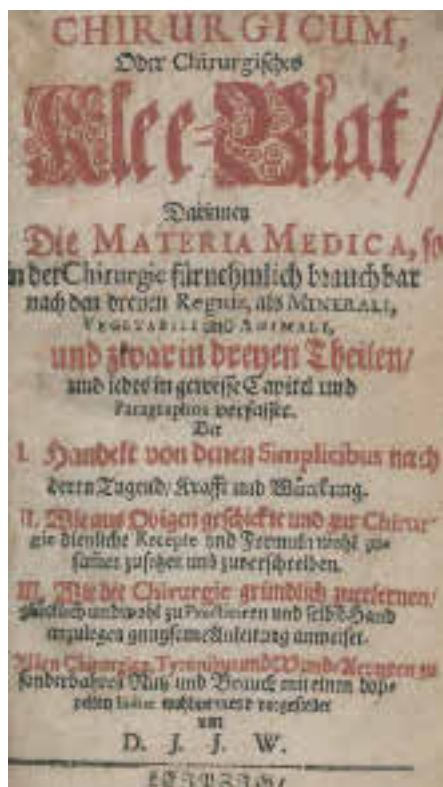 CHIRURGICUM,
Oder Chirurgisches
Klee-Blat/
Darinnen
Die MATERIA MEDICA, so
in der Chirurgie fürnehmlich brauchbar
nach den dreyen Regnis, als MINERALI,
VEGETABILI und ANIMALI,
und zwar in dreyen Theilen/
und iedes in gewisse Capitel und
Paragraphos verfasset.
Der
I. Handelt von denen Simplicibus nach
deren Tugend/Krafft und Würckung.
II. Wie aus Obigen geschickte und zur Chirur-
gie dienliche Recepte und Formuln wohl zu-
samen zusetzen und zuverschreiben.
III. Wie die Chirurgie gründlich zuerlernen/
glücklich und wohl zu Practiciren und selbst Hand
anzulegen gnugsame Anleitung anweiset.
Allen Chirurgien, Tyronibus und Wund-Aerzten zu
sonderbahren Nutz und Brauch mit einem dop-
pelten vorgestellet
von
D. J. J. W.
LEIPZIG/